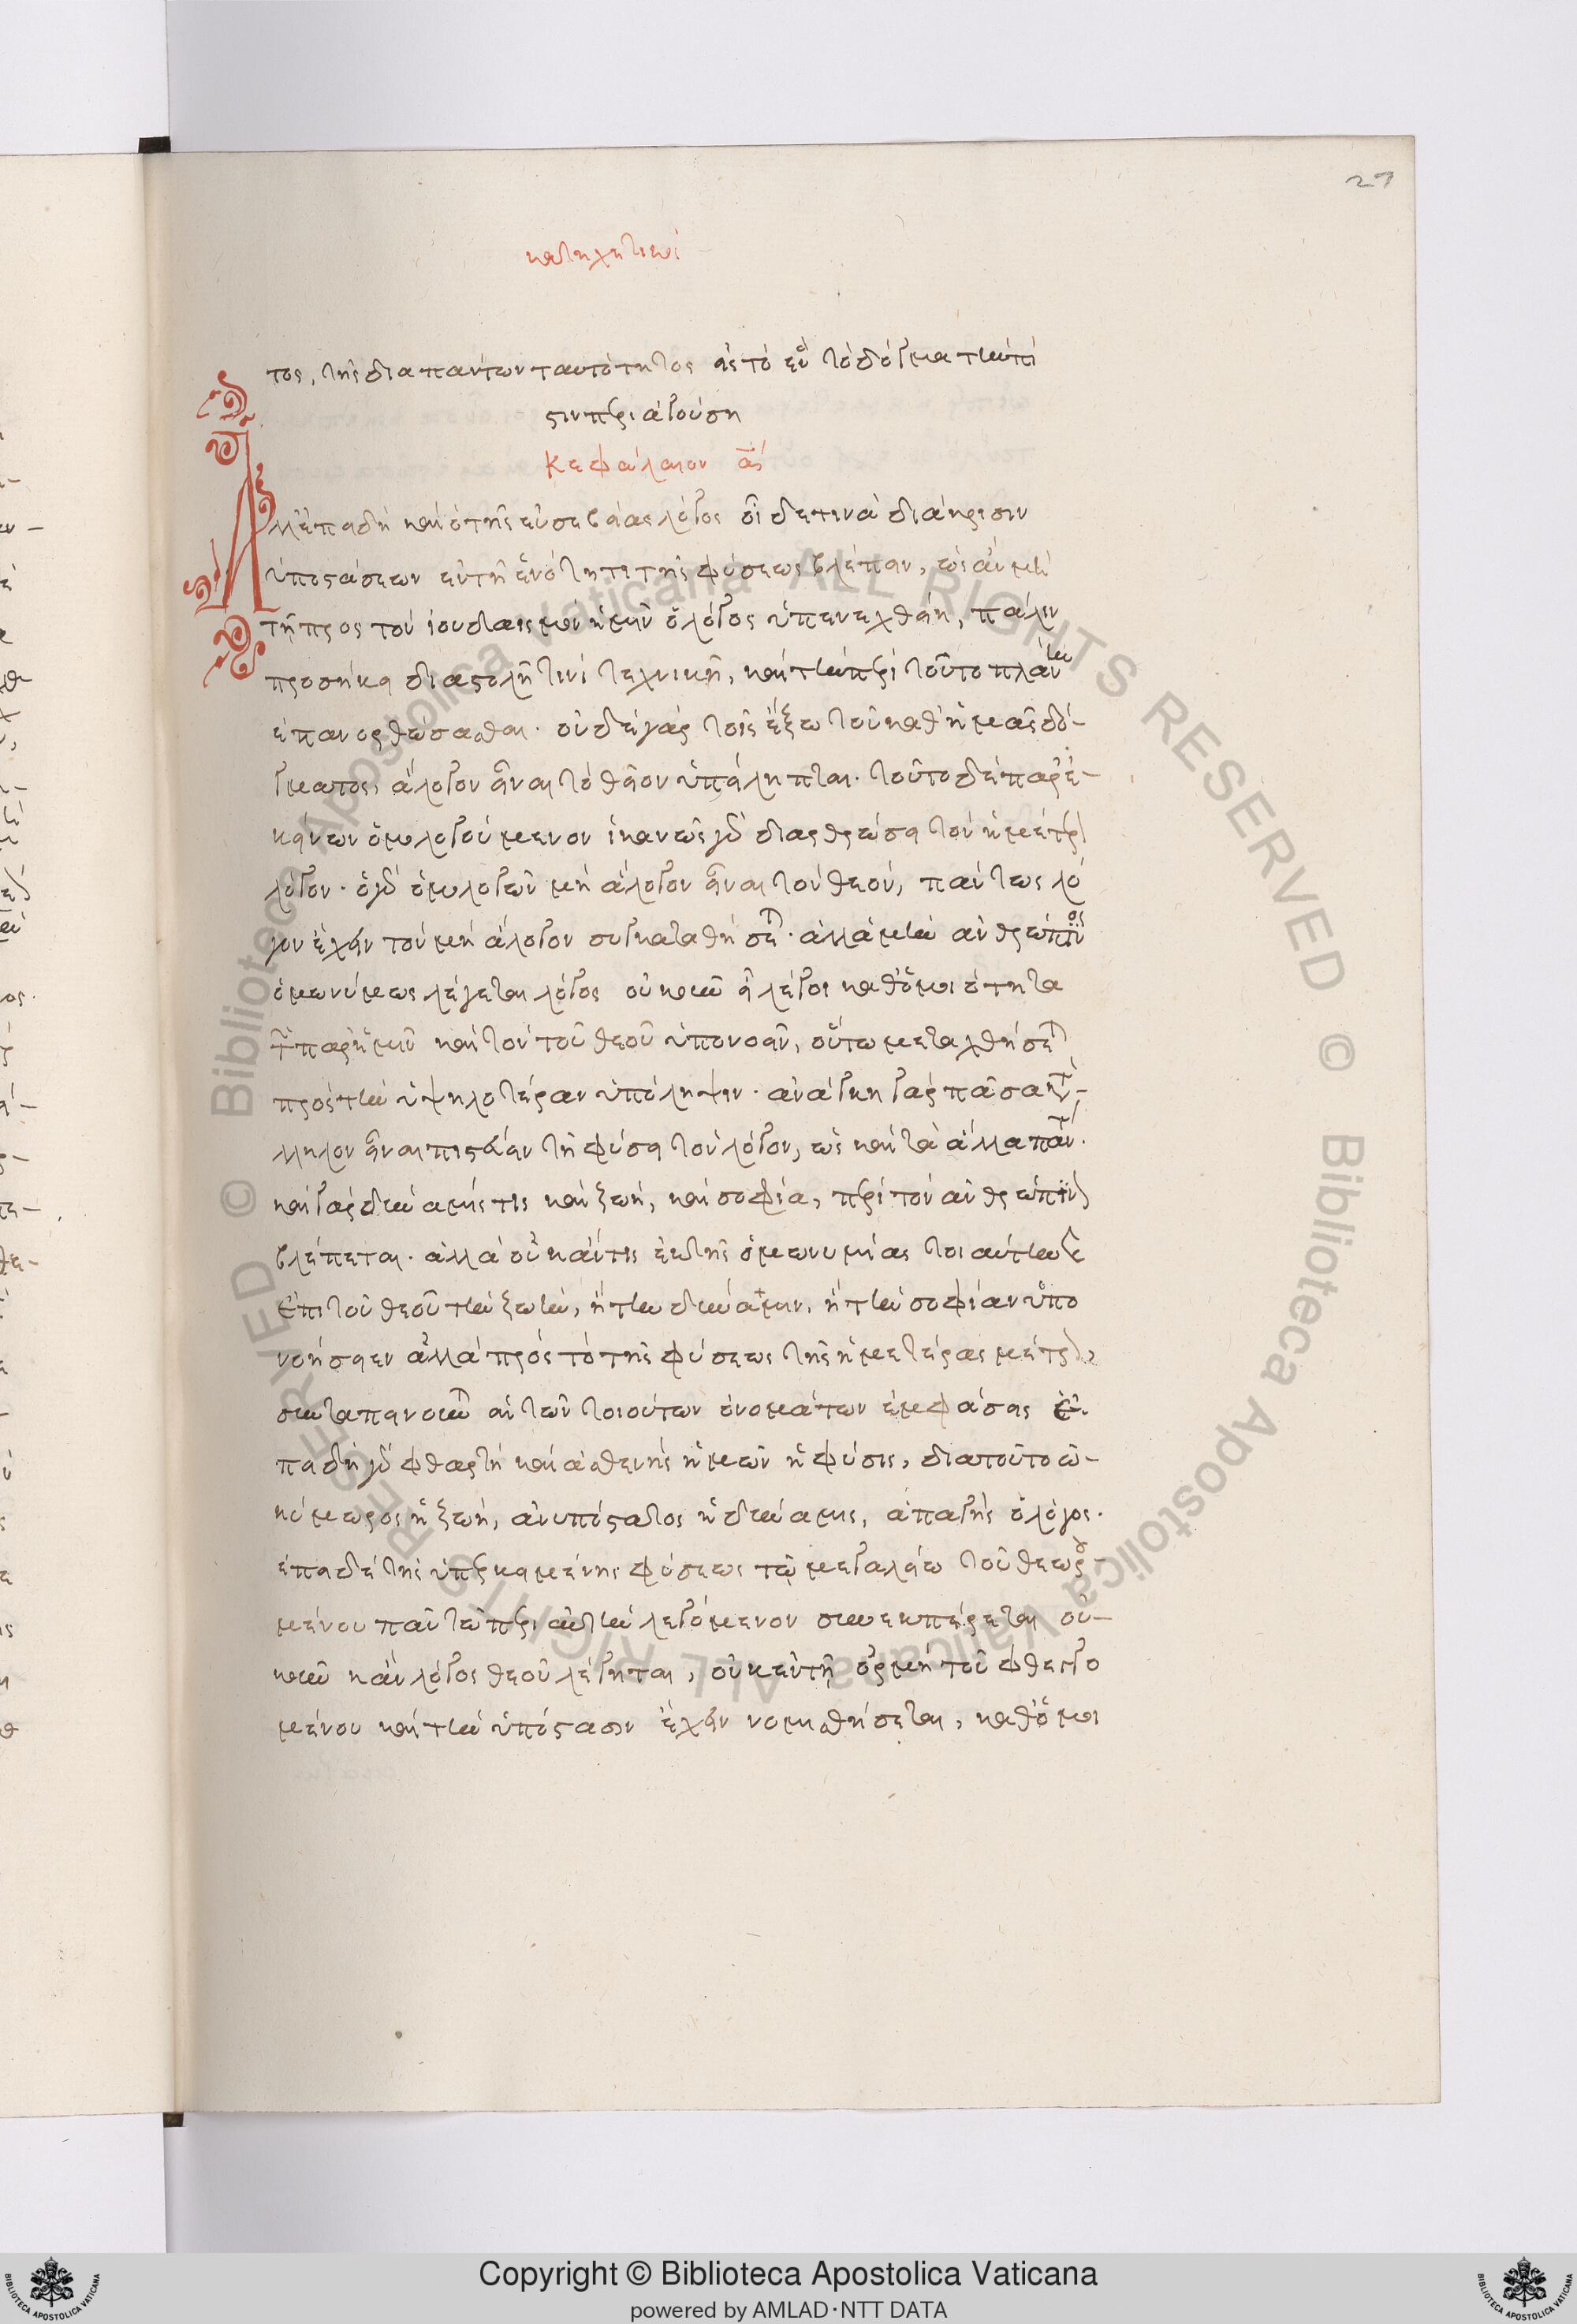 27
κατηχητικοί
τος, τῆς δια παντων ταυτότητος εἰς τὸ ἓν τὸ δόγμα τὴν πί
στιν περιαγούση
Κεφάλαιον αʹ
Ἀλλ' ἐπειδὴ καὶ ὁ τῆς εὐσεβείας λόγος οἶδε τινὰ διάκρισιν
ὑποστάσεων ἐν τῇ ἑνότητι τῆς φύσεως βλέπειν, ὡς ἂν μὴ
τῇ προς τὸν ἰουδαισμὸν ἡμῖν ὁ λόγος ὑπενεχθείη, πάλιν
προσήκει διαστολῆ τινὶ τεχνικῆ, καὶ τὴν περὶ τοῦτο πλάνην
ἐπανορθώσασθαι. οὐδὲ γὰρ τοῖς ἔξω τοῦ καθ' ἡμᾶς δό-
γματος, ἄλογον εἶναι τὸ θεῖον ὑπείληπται. τοῦτο δὲ παρ' ἐ-
κείνων ὁμολογούμενον ἱκανῶς διαρθρώσει τὸν ἡμέτερον
λόγον. ὁ γὰρ ὁμολογῶν μὴ ἄλογον εἶναι τὸν θεόν, πάντως λό
γον ἔχειν τὸν μὴ ἄλογον συγκαταθήσεται. ἀλλὰ μὴν ἀνθρώπινος
ὁμωνύμως λέγεται λόγος οὐκοῦν εἰ λέγοι καθ' ὁμοιότητα
τῶν παρ' ἡμῖν καὶ τὸν τοῦ θεοῦ ὑπονοεῖν, οὕτω μεταχθήσεται
πρὸς τὴν ὑψηλοτέραν ὑπόληψιν. ἀνάγκη γὰρ πᾶσα κατάλ-
ληλον εἶναι πιστεύειν τῆ φύσει τὸν λόγον, ὡς καὶ τὰ ἄλλα πάντα.
καὶ γὰρ δύναμίς τις καὶ ζωή, καὶ σοφία, περὶ τὸν ἀνθρώπινον
βλέπεται. ἀλλὰ οὐκ ἄν τις ἐκ τῆς ὁμωνυμίας τοιαύτην
ἐπι τοῦ θεοῦ τὴν ζωήν, ἢ τὴν δύναμιν, ἢ τὴν σοφίαν ὑπο
νοήσειεν ἀλλὰ πρὸς τὸ τῆς φύσεως τῆς ἡμετέρας μέτρον,
συνταπεινοῦνται αἱ τῶν τοιούτων ὀνομάτων ἐμφάσεις ἐ
πειδὴ γὰρ φθαρτὴ καὶ ἀσθενὴς ἡμῶν ἡ φύσις, δια τοῦτο ὠ-
κύμωρος ἡ ζωή, ἀνυπόστατος ἡ δύναμις, ἀπαγὴς ὁ λόγος.
ἐπι δὲ τῆς ὑπερκειμένης φύσεως τῷ μεγαλείω τοῦ θεωρου-
μένου πᾶν τὸ περι αὐτὴν λεγόμενον συνεπαίρεται οὐ-
κοῦν κἂν λόγος θεοῦ λέγηται, οὐκ ἐν τῇ ὁρμῇ τοῦ φθεγγο
μένου καὶ τὴν ὑπόστασιν ἔχειν νομισθήσεται, καθ' ὁμοι
Copyright © Biblioteca Apostolica Vaticana
powered by AMLAD·NTT DATA